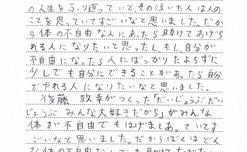 の人生をふり返っていてその泣いた人は人のこ
とを思っていてすごいなと思いました。だか
ら体の不自由な人にあったら助けてあげら
れる人になりたいと思ったしもし自分が
不自由になったら人にばっかりたよらずに
少しでも自分にできることがあったら自分
でやれる人になりたいなと思いました。
後藤 政孝がつくった「だいじょうぶだい
じょうぶ みんな大好きだから」がみんな
体が不自由でもはげましあっていてす
ごいなと思いました。だからぼくはどん
な体の不自由な人でも助けてあげ